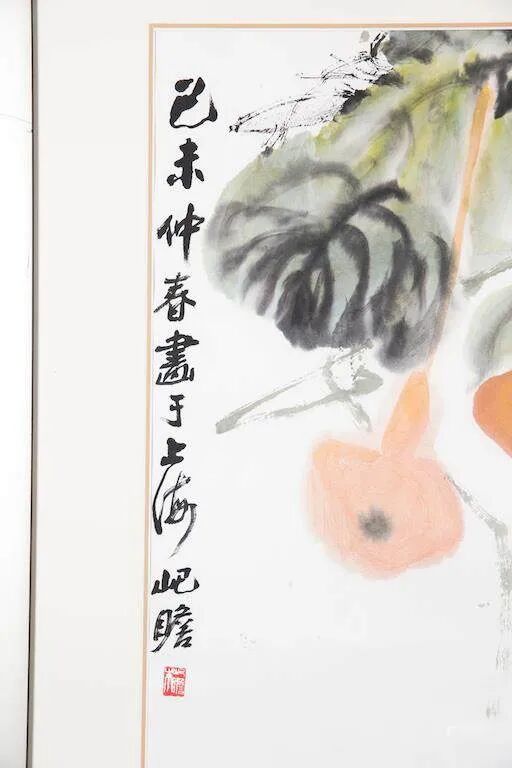 己未仲春畫于上海 屺瞻